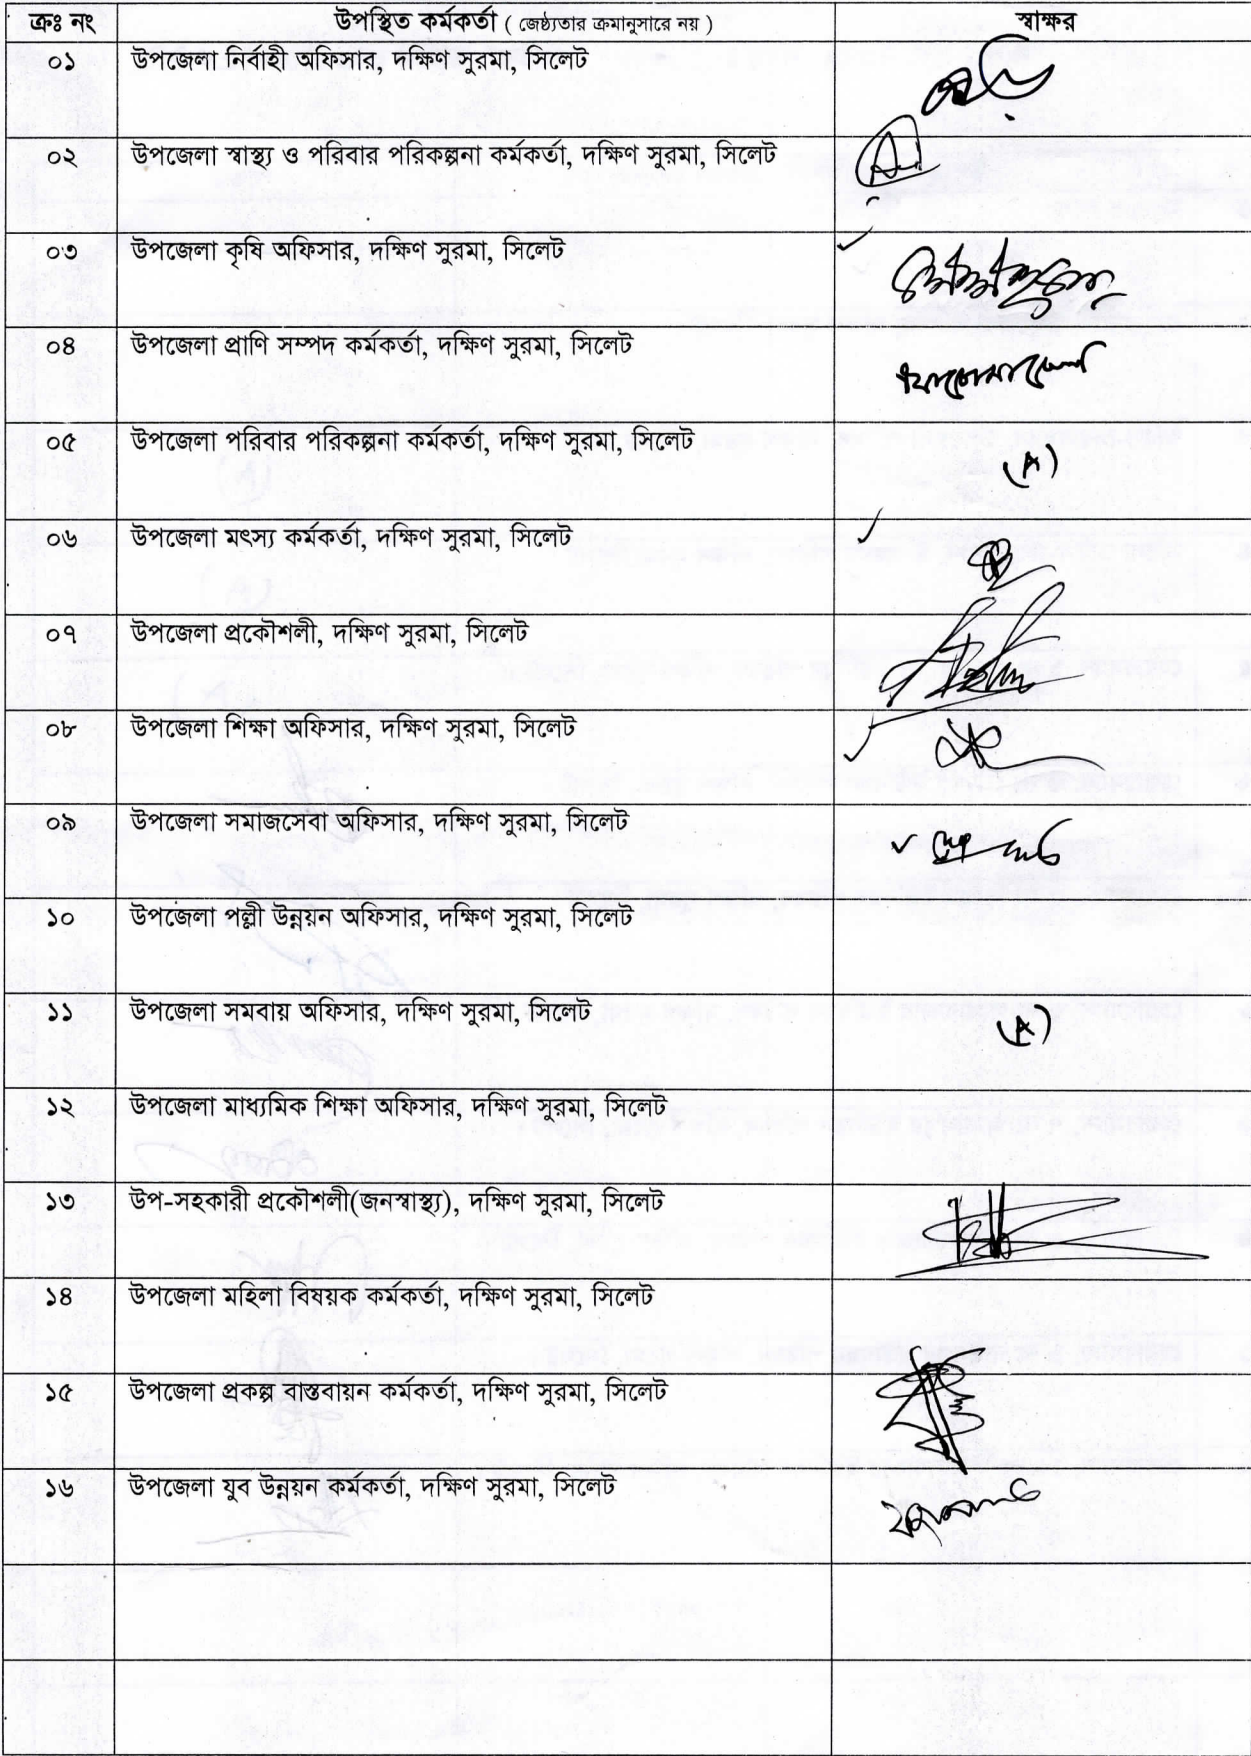 ক্রঃ নং উপস্থিত কর্মকর্তা ( জেষ্ঠ্যতার ক্রমানুসারে নয় ) স্বাক্ষর
০১ উপজেলা নির্বাহী অফিসার, দক্ষিণ সুরমা, সিলেট
০২ উপজেলা স্বাস্থ্য ও পরিবার পরিকল্পনা কর্মকর্তা, দক্ষিণ সুরমা, সিলেট
০৩ উপজেলা কৃষি অফিসার, দক্ষিণ সুরমা, সিলেট
০৪ উপজেলা প্রাণি সম্পদ কর্মকর্তা, দক্ষিণ সুরমা, সিলেট
০৫ উপজেলা পরিবার পরিকল্পনা কর্মকর্তা, দক্ষিণ সুরমা, সিলেট (A)
০৬ উপজেলা মৎস্য কর্মকর্তা, দক্ষিণ সুরমা, সিলেট
০৭ উপজেলা প্রকৌশলী, দক্ষিণ সুরমা, সিলেট
০৮ উপজেলা শিক্ষা অফিসার, দক্ষিণ সুরমা, সিলেট
০৯ উপজেলা সমাজসেবা অফিসার, দক্ষিণ সুরমা, সিলেট
১০ উপজেলা পল্লী উন্নয়ন অফিসার, দক্ষিণ সুরমা, সিলেট
১১ উপজেলা সমবায় অফিসার, দক্ষিণ সুরমা, সিলেট (A)
১২ উপজেলা মাধ্যমিক শিক্ষা অফিসার, দক্ষিণ সুরমা, সিলেট
১৩ উপ-সহকারী প্রকৌশলী(জনস্বাস্থ্য), দক্ষিণ সুরমা, সিলেট
১৪ উপজেলা মহিলা বিষয়ক কর্মকর্তা, দক্ষিণ সুরমা, সিলেট
১৫ উপজেলা প্রকল্প বাস্তবায়ন কর্মকর্তা, দক্ষিণ সুরমা, সিলেট
১৬ উপজেলা যুব উন্নয়ন কর্মকর্তা, দক্ষিণ সুরমা, সিলেট